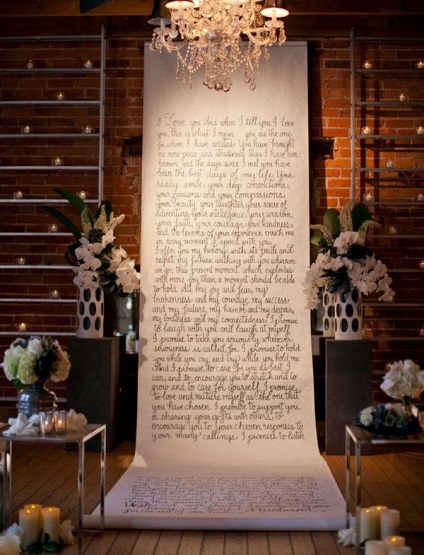 I Love you. And when I tell you I love
you, this is what I mean... you are the one
for whom I have waited. You have brought
me more peace and than I have ever
known, and the days since I met you have
been the best days of my life. Your
ready smile, your deep convictions,
your passions and your compassions,
your beauty, your laughter, your sense of
adventure, your intelligence, your wisdom,
your faith, your courage, your kindness,
and the lessons of your experience teach me
in every moment I spend with you.
I offer you my history with its pride and
regret, my future, walking with you wherever
we go, this present moment, which explodes
with more joy than a moment should be able
to hold. And my joy and fear, my
brokenness and my courage, my success
and my failure, my havoc and my despair,
my loneliness and my connectedness. I promise
to laugh with you and laugh at myself.
I promise to take you seriously wherever
seriousness is called for. I promise to hold
you while you cry and cry while you hold me.
And I promise to care for you as best I
can, and to encourage you to stretch and to
grow and to care for yourself. I promise
to love and nurture myself as the one that
you have chosen. I promise to support you
in sharing your gifts with others, to
encourage you to your chosen responses to
your many callings. I promise to listen